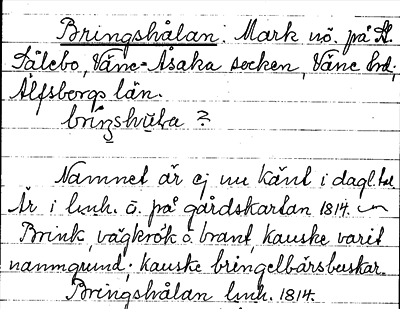 Bringshålan: Mark nö. på St.
Fälebo, Väne-Åsaka socken, Väne hrd;
Älfsborgs län.
bri̱ngshu̱la ?
Namnet är ej nu känt i dagl. tal
Är i lmh. ö. på gårdskartan 1814.
Brink, vägkrök o. brant, kanske varit
namngrund; kanske bringelbärsbuskar.
Bringshålan lmh. 1814.